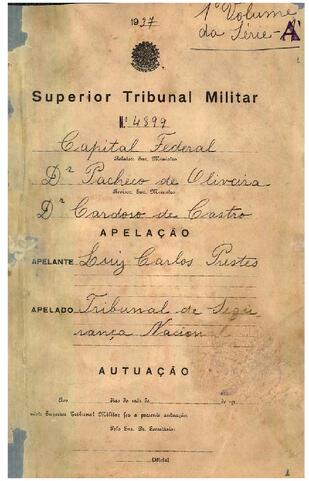 1937
1º Volume
da Série - A
Superior Tribunal Militar
N. 4899
Capital Federal
Relator Snr. Ministro
Dr Pacheco de Oliveira
Revisor Snr. Ministro
Dr Cardoso de Castro
APELAÇÃO
APELANTE Luiz Carlos Prestes
APELADO Tribunal de Segu
rança Nacional
AUTUAÇÃO
Aos dias do mês de de
neste Superior Tribunal Militar foi a presente autuação
Pelo Snr. Dr. Secretário:
Oficial